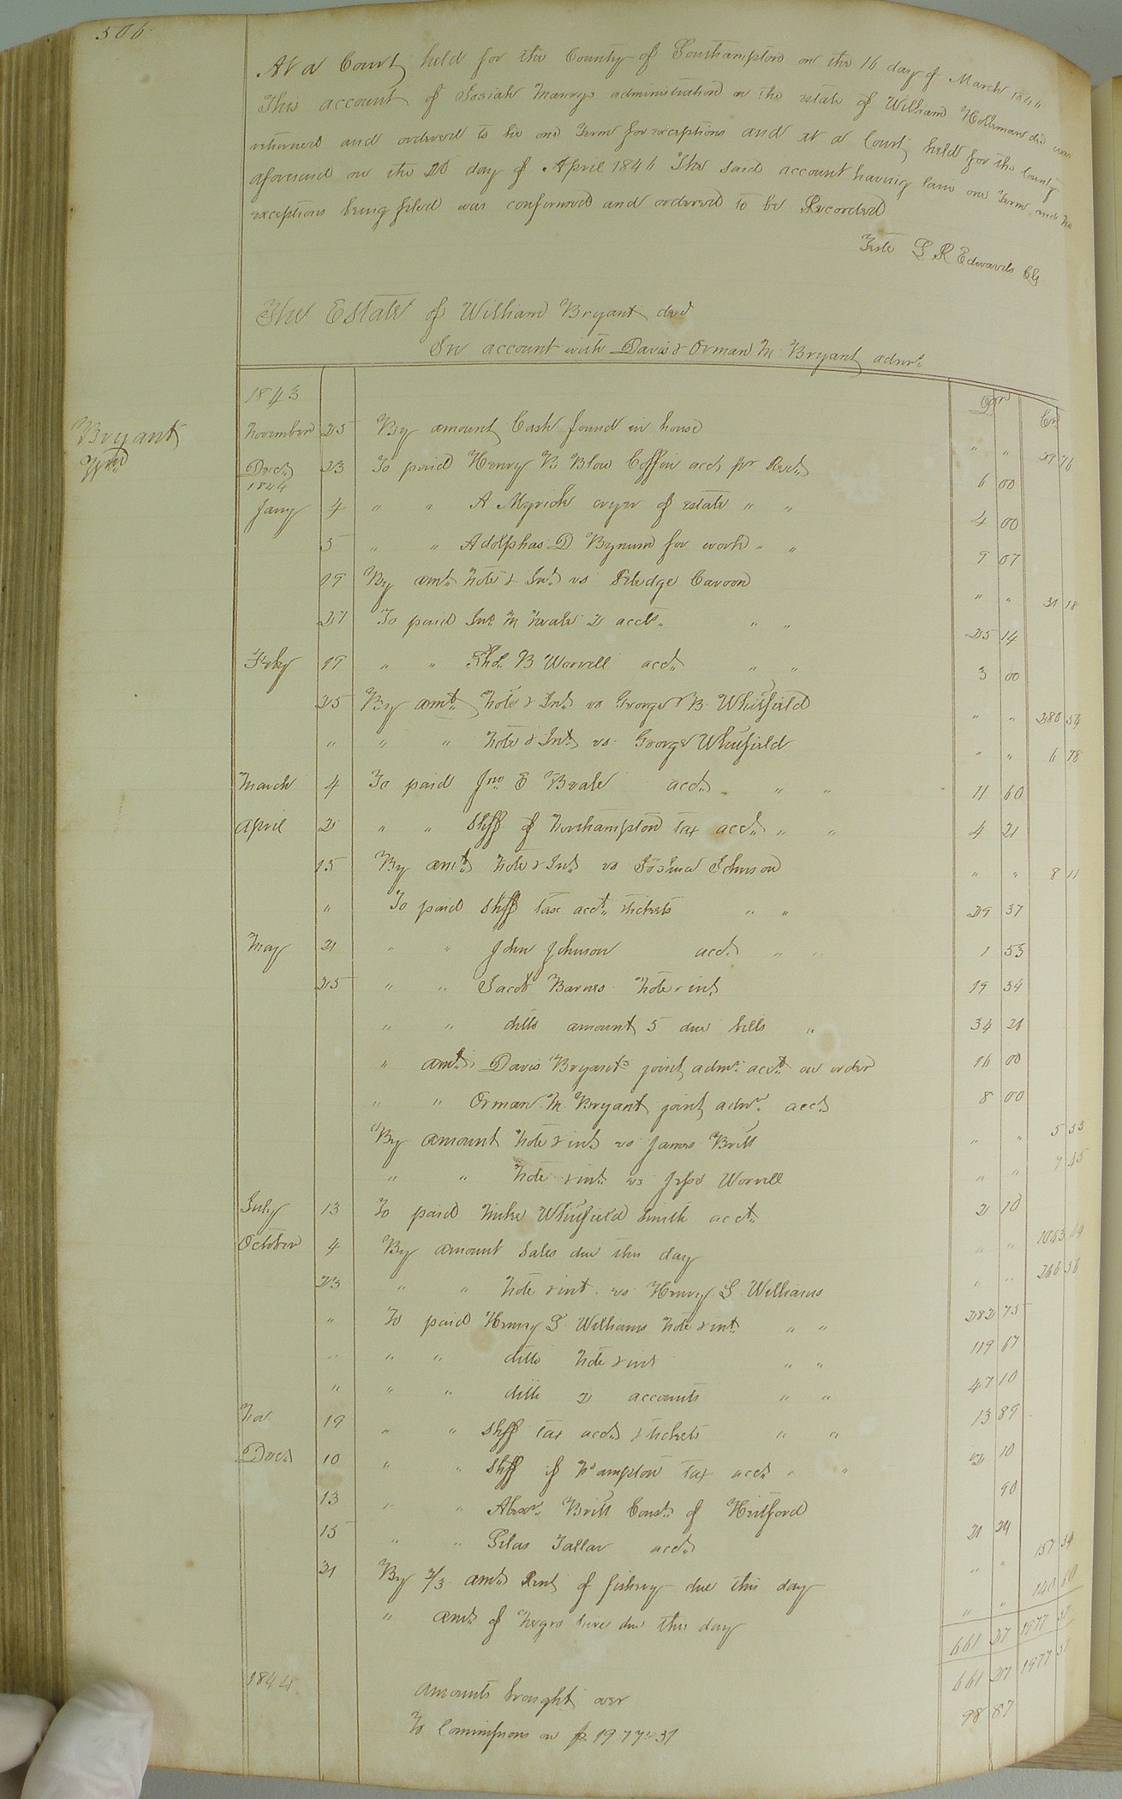 306
At a Court held for the County of Southampton on the 16 day of March 1846
This account of Josiah administration on the estate of William Holleman decd was
returned and ordered to lie one Term for exceptions and at a Court held for the County
aforesaid on the 20 day of April 1846 The said account having lain one Term and no
exceptions being filed was confirmed and ordered to be Recorded
Teste L R Edwards Clk
The Estate of William Bryant decd
In account with Davis & Orman M Bryant admrs
Bryant
Wm
1843 Dr Cr
November 25 By amount Cash found in house " " 29 76
Decr 23 To paid Henry B. Blow Coffin acct pr Rect 6 00
1844
Jany 4 " " A Myrick cryer of estate " " 4 00
5 " " Adolphas D Bynum for work " " 9 07
19 By amt note & Int vs Pledge Cavoon " " 21 18
27 To paid Jno M 2 accts " " 25 14
Feby 19 " " B Worrell acct " " 3 00
25 By amt note & Int vs George B Whitfield " " 280 54
" " " note & Int vs George Whitfield " " 6 78
March 4 To paid Jno E Beale acct " " 11 60
April 2 " " Shff of Northampton tax acct " " 4 21
15 By amt note & Int vs Joshua Johnson " " 8 11
" To paid Shff tax acct tickets " " 29 37
May 21 " " John Johnson acct " " 1 53
25 " " Jacob Barnes note & int 19 34
" " ditto amount 5 due bills " 34 21
" amt Davis Bryants joint admr acct on order 16 00
" " Orman M Bryant joint admr acct 8 00
By amount note & int vs James Britt " " 5 33
" " note & int vs Worrell " " 7 45
July 13 To paid Whitfield Smith acct 2 10
October 4 By amount Sales due this day " " 1043 64
23 " " note & int vs Henry S Williams " " 266 38
" To paid Henry S Williams note & int " " 282 75
" " " ditto note & int " " 119 67
" " " ditto 2 accounts " " 47 10
Nov 19 " " Shff tax acct & tickets " " 13 89
Decr 10 " " Shff of Nhampton tax acct " " 2 10
13 " " Britt Const of 90
15 " " Silas acct 21 29
31 By 2/3 amt Rent of fishery due this day " " 157 34
" amt of Negro hire due this day " " 140 80
661 27 1977 31
1844 amounts brought over 661 27 1977 31
To Commissions on $1977.31 98 87